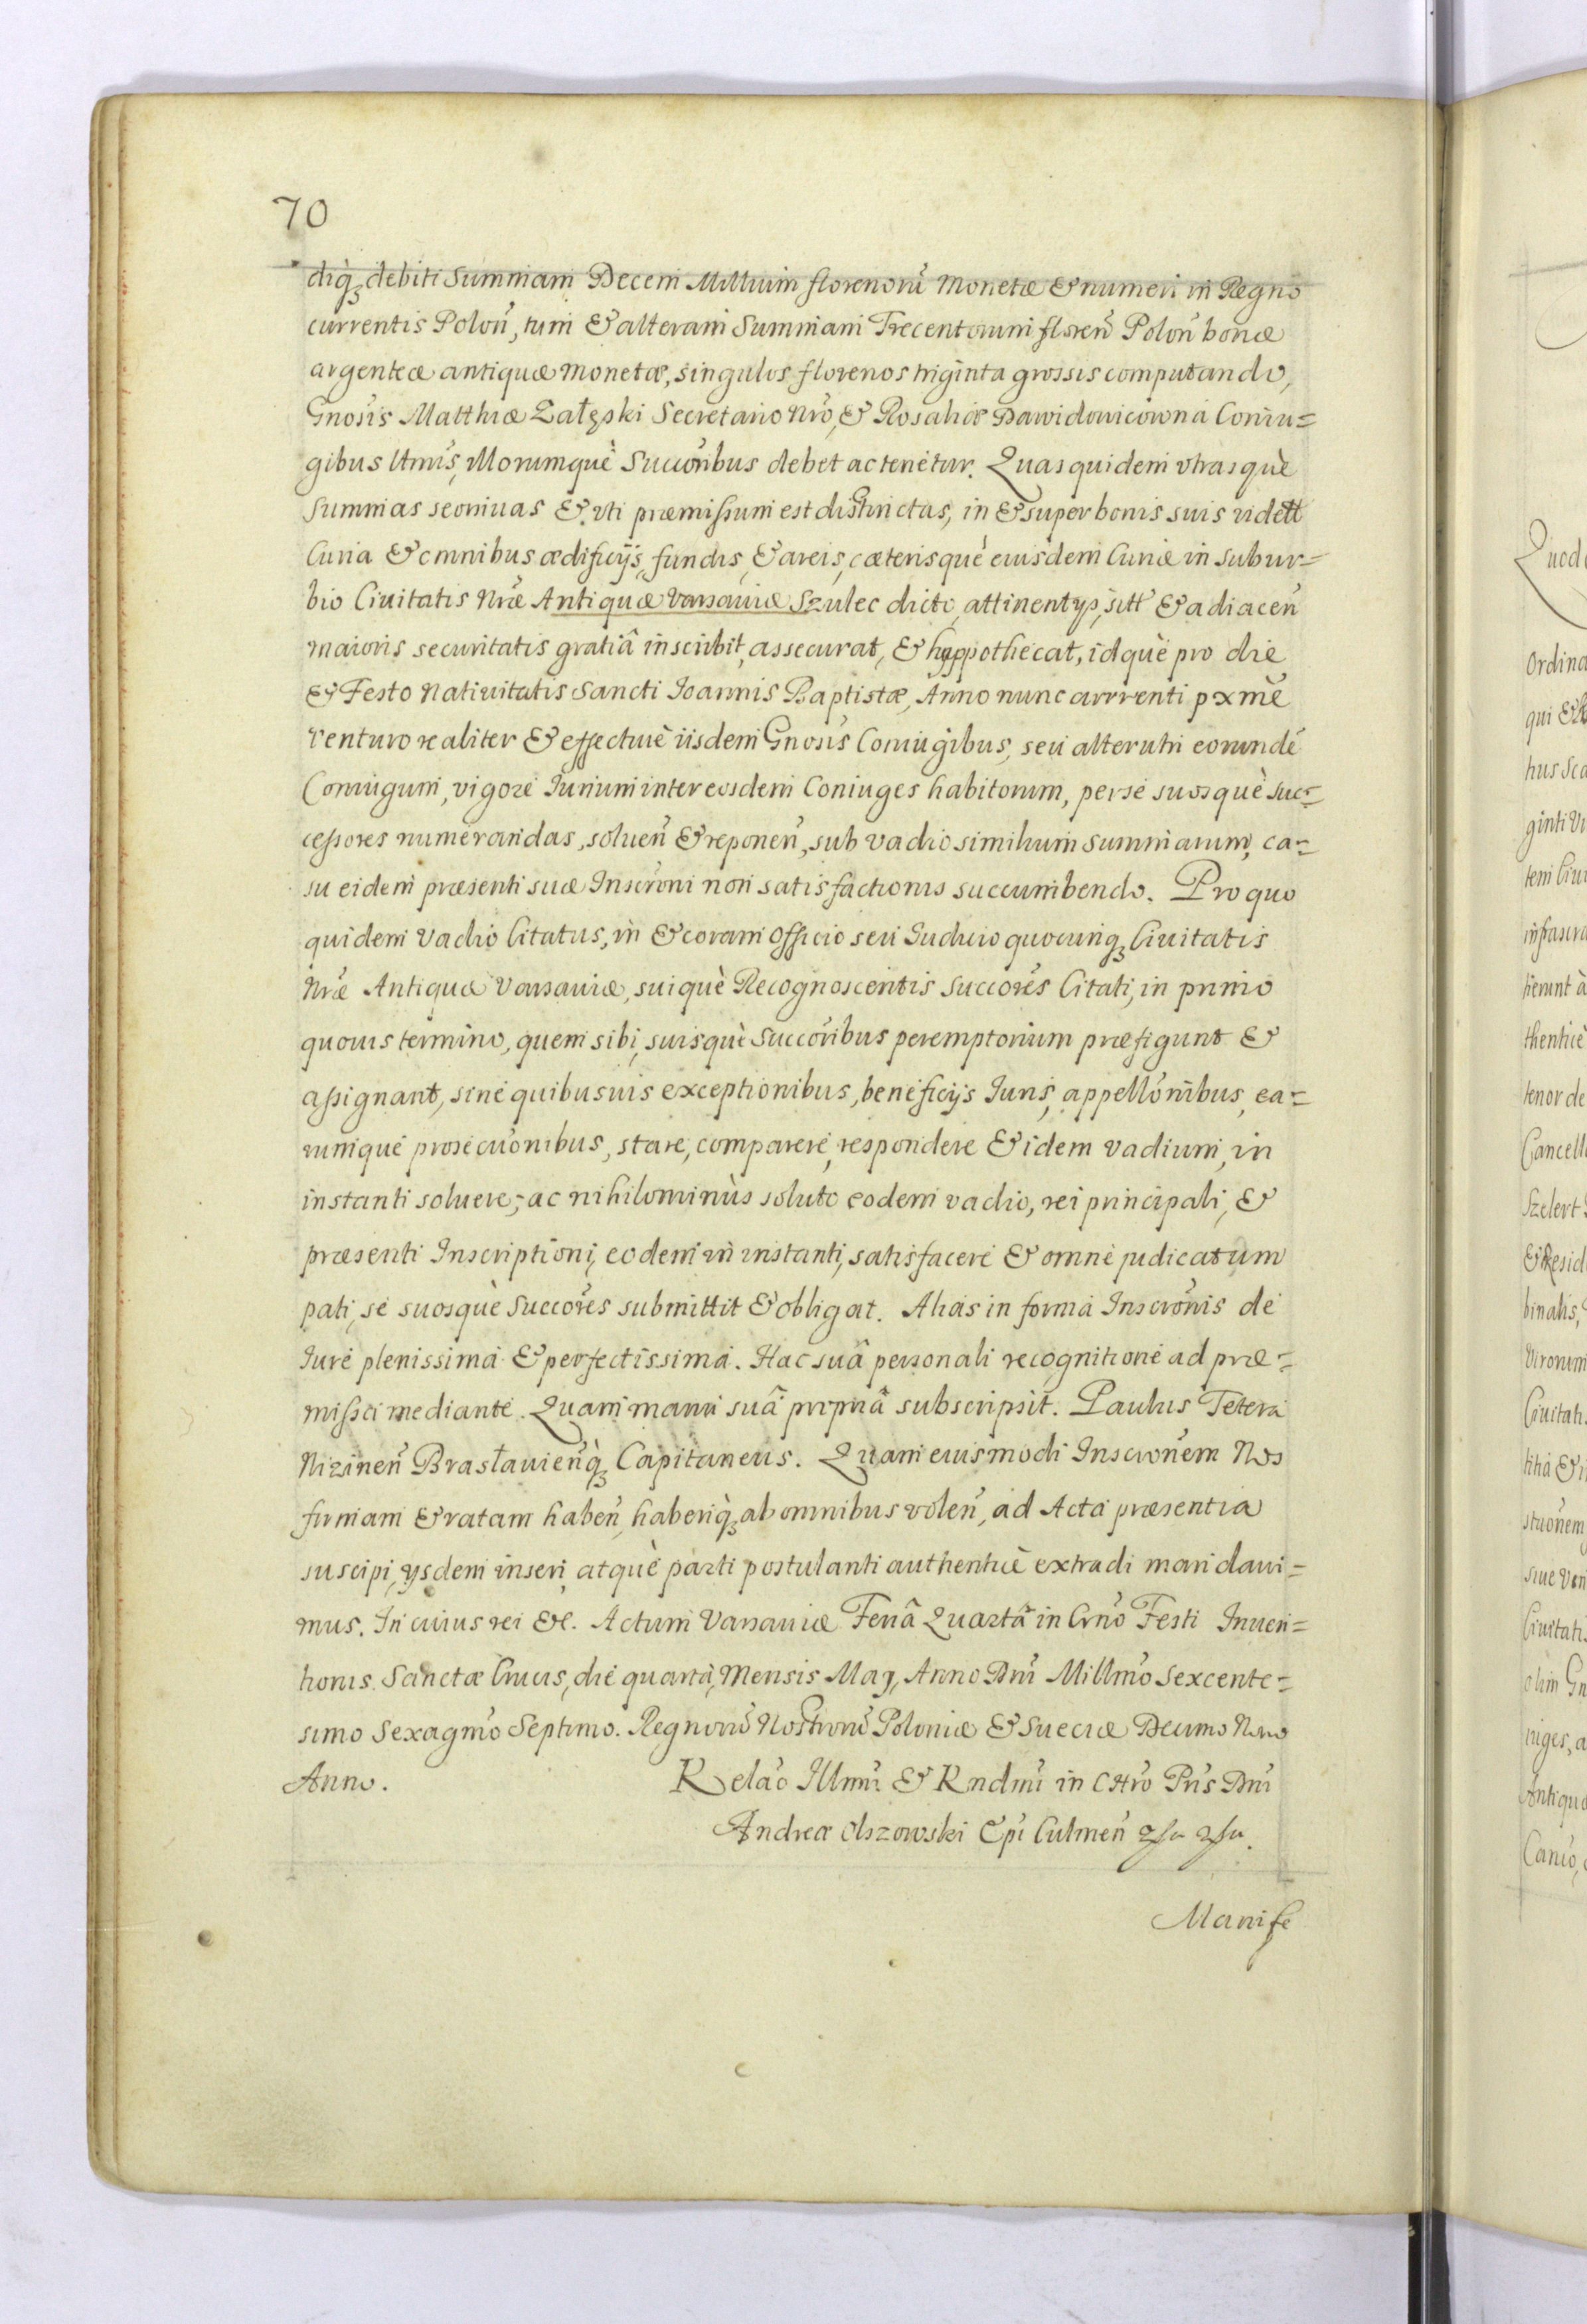 70
diq̀₃ debiti Summam Decem Millium florenorū Monetæ & numeri in Regno
currentis Polon̄, tum & alteram Summam Trecentorum floren̄ Polon̄ bonæ
argenteæ antiquæ Monetæ, singulos florenos triginta grossis computando,
Gnosis Matthiæ Załęski Secretario Nrō, & Rosaliæ Dawidowicowna Coniu=
gibus ltmis, Illorumquè Succoribus debet ac tenetur. Quas quidem vtrasquè
Summas seoriuas & vti præmissum est distinctas, in & super bonis suis vidett
Curia & omnibus ædificijs, fundis, & areis, cæterisquè eiusdem Curiæ in subur=
bio Ciuitatis Nræ Antiquæ Varsauiæ Szulec dicto, attinentijs, sitt & adiacen̄
maioris securitatis gratiâ inscribit, assecurat, & hyppothecat, idquè pro die
& Festo Natiuitatis Sancti Ioannis Baptistæ, Anno nunc currenti pxmè
venturo realiter & effectiuè iisdem Gnosis Coniugibus, seu alterutri eorundē
Coniugum, vigore Iurium inter eosdem Coniuges habitorum, per se suosquè Suc=
cessores numerandas, soluen̄ & reponen̄, sub vadio similium summarum, ca=
su eidem præsenti suæ Inscroni non satisfactionis succumbendo. Pro quo
quidem Vadio Citatus, in & coram Officio seu Iudicio quocunq₃ Ciuitatis
Nræ Antiquæ Varsauiæ, suiquè Recognoscentis Succores Citati, in primo
quouis termino, quem sibi, suisquè Succoribus peremptorium præfigunt &
assignant, sine quibusuis exceptionibus, beneficijs Iuris, appellonibus, ea=
rumque prosecuonibus, stare, comparere, respondere & idem vadium, in
instanti soluere; ac nihilominùs soluto eodem vadio, rei principali, &
præsenti Inscriptioni, eodem in instanti, satisfacere & omne judicatum
pati, se suosquè Succores submittit & obligat. Alias in forma Inscronis de
Iure plenissima & perfectissima. Hac suâ personali recognitione ad præ=
missa mediante. Quam manu suâ propriâ subscripsit. Paulus Tetera
Nizinen̄ Brasłauien̄q̀₃ Capitaneus. Quam eiusmodi Inscronem Nos
firmam & ratam haben̄, haberiq̀₃ ab omnibus volen̄, ad Acta præsentia
suscipi, ijsdem inseri, atquè parti postulanti authenticè extradi mandaui=
mus. In cuius rei &c. Actum Varsauiæ Feriâ Quartâ in Crnō Festi Inuen=
tionis Sanctæ Crucis, die quarta, Mensis Maij, Anno Dnī Millmō Sexcente=
simo Sexagmō Septimo. Regnorū Nostrorū Poloniæ & Sueciæ Decimo Nono
Anno.
Relaō Illmi & Rndmi in Chrō Pris Dnī
Andreæ Olszowski Epī Culmen̄
Manife